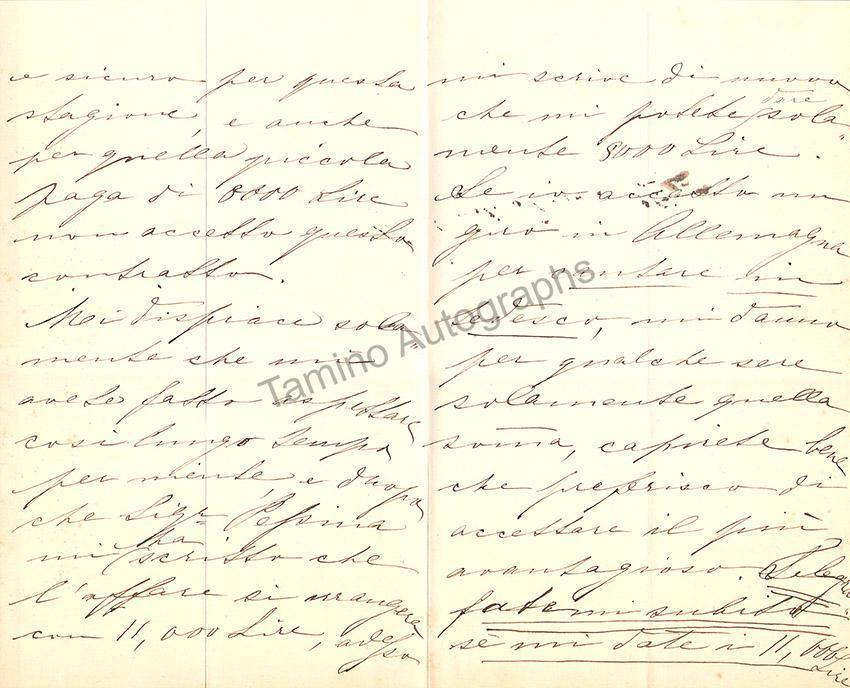 e sicuro per questa
stagione, e anche
per quella piccola
paga di 8000 Lire
non accetto questo
contratto.
Mei dispiace sola"
mente che mi
avete fatto aspettare
cosi lungo tempo
per niente, e dopo
che Sigr Pessina
mi ha scritto che
l'affare si arrangera
con 11,000 Lire, adesso
mi scrive di nuovo
che mi potete dare sola"
mente 8000 Lire.
Se io accetto un
giro in Allemagna
per cantare in
tedesco, mi danno
per qualche sere
solamente quella
som̄a, capirete bene
che preferisco di
accettare il più
avantagioso. Telegra"
fatemi subito
se mi date i 11,000 Lire
Tamino Autographs